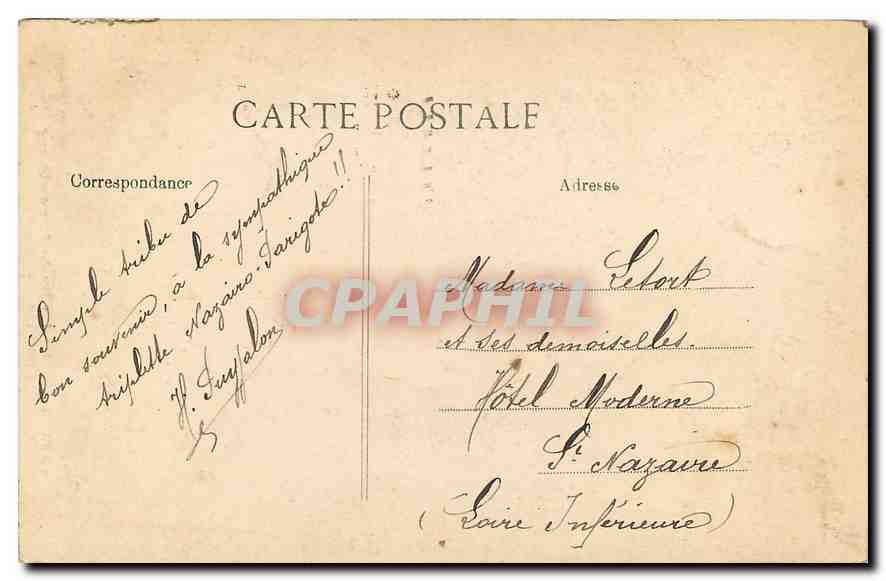 CARTE POSTALE
Correspondance
Adresse
Simple tribu de
bon souvenir, à la sympathique
triplette Nazairo-Parigote!!
H. Puyjalon
Madame Letort
et ses demoiselles.
Hôtel Moderne
St Nazaire
(Loire Inférieure)
CPAPHIL